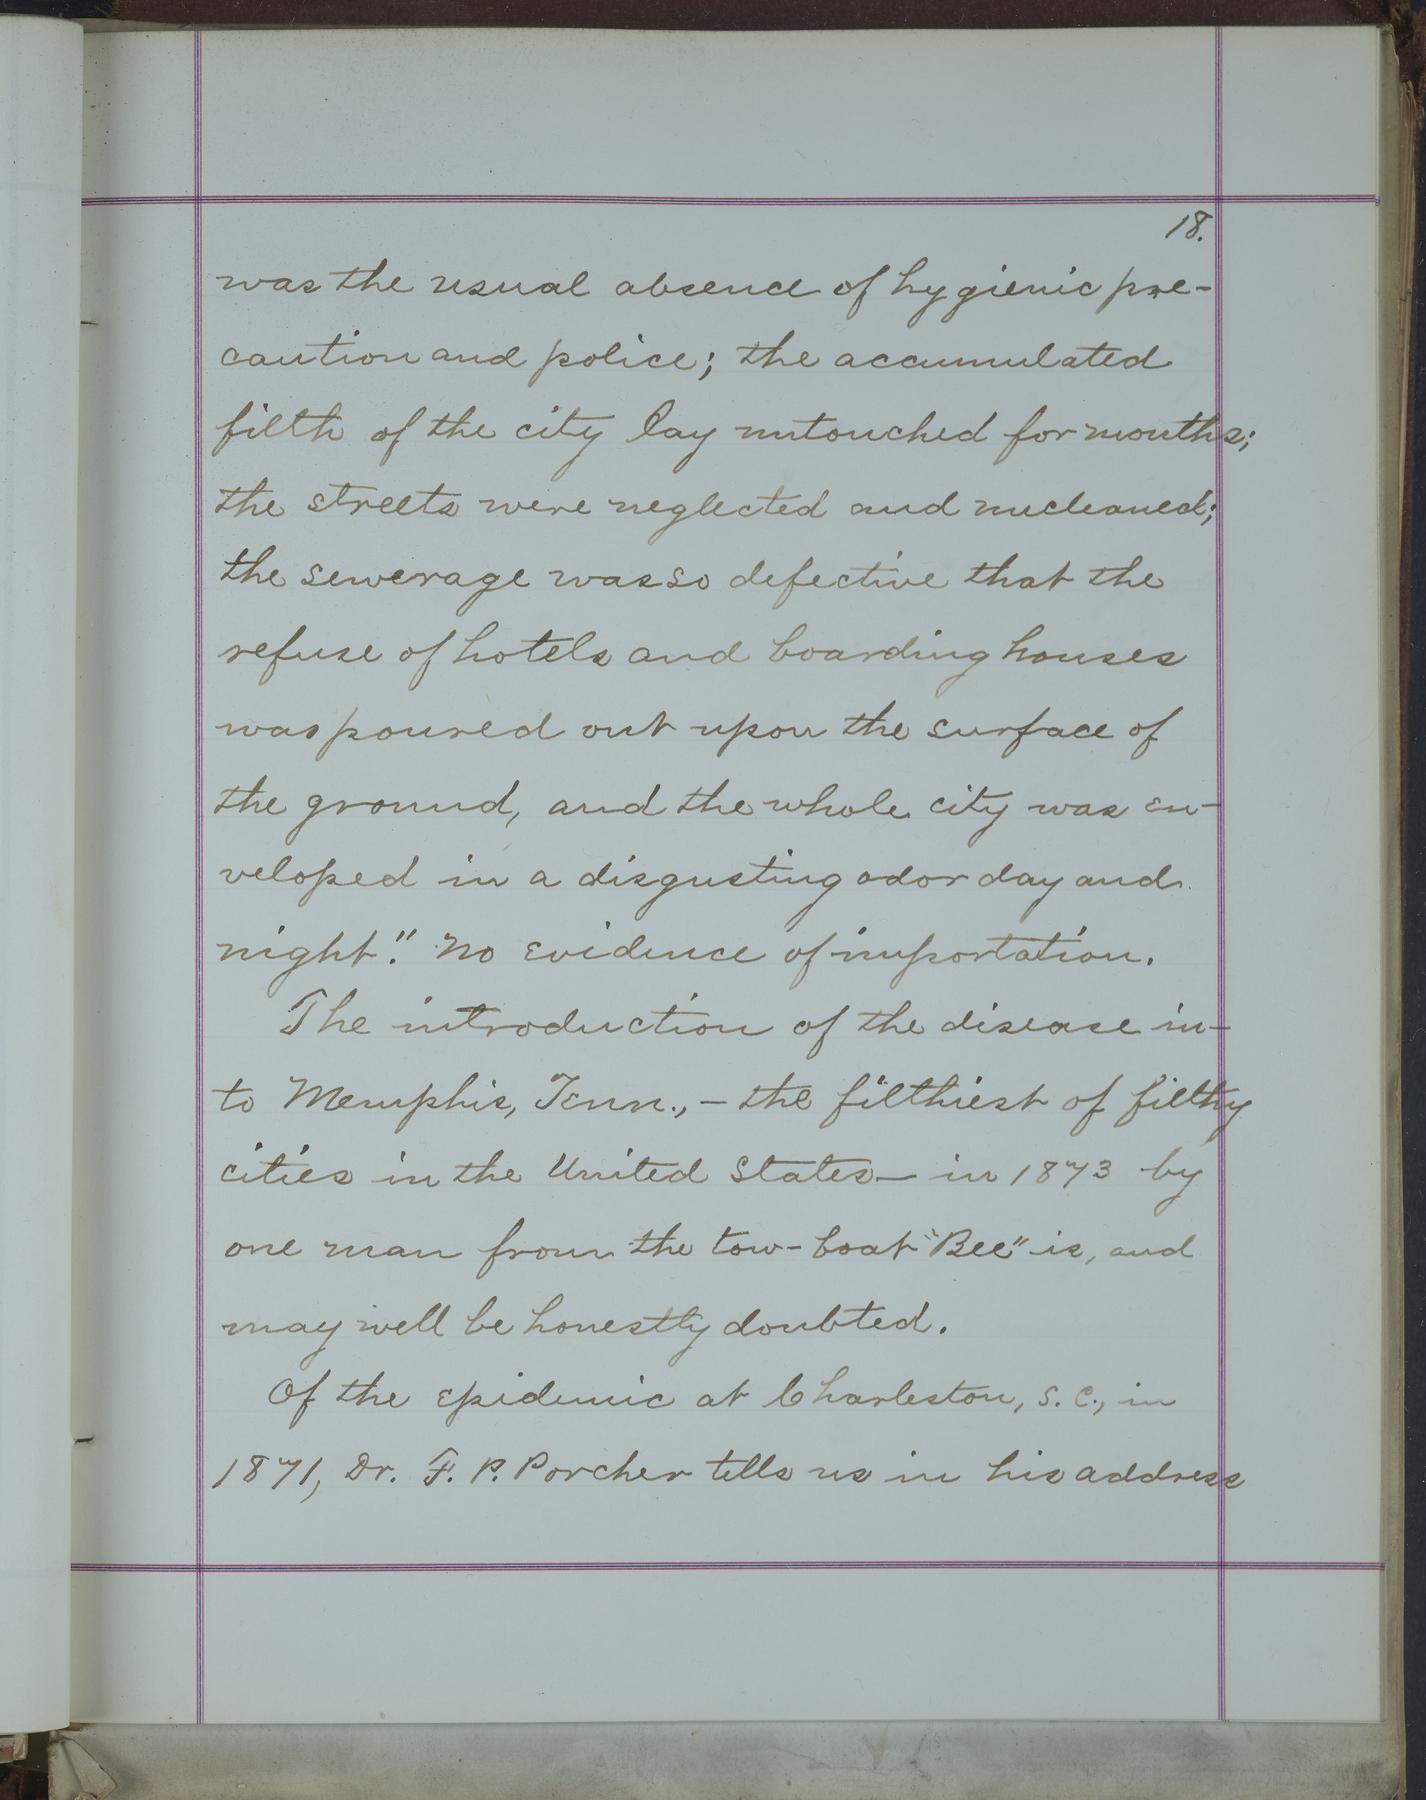 18.
was the usual absence of hygienic pre-
caution and police; the accumulated
filth of the city lay untouched for months;
the streets were neglected and uncleaned;
the sewerage was so defective that the
refuse of hotels and boarding houses
was poured out upon the surface of
the ground, and the whole city was en-
veloped in a disgusting odor day and
night". No evidence of importation.
The introduction of the disease in-
to Memphis, Tenn., – the filthiest of filthy
cities in the United States – in 1873 by
one man from the tow-boat "Bee" is, and
may well be honestly doubted.
Of the epidemic at Charleston, S. C., in
1871, Dr. F. P. Porcher tells us in his address